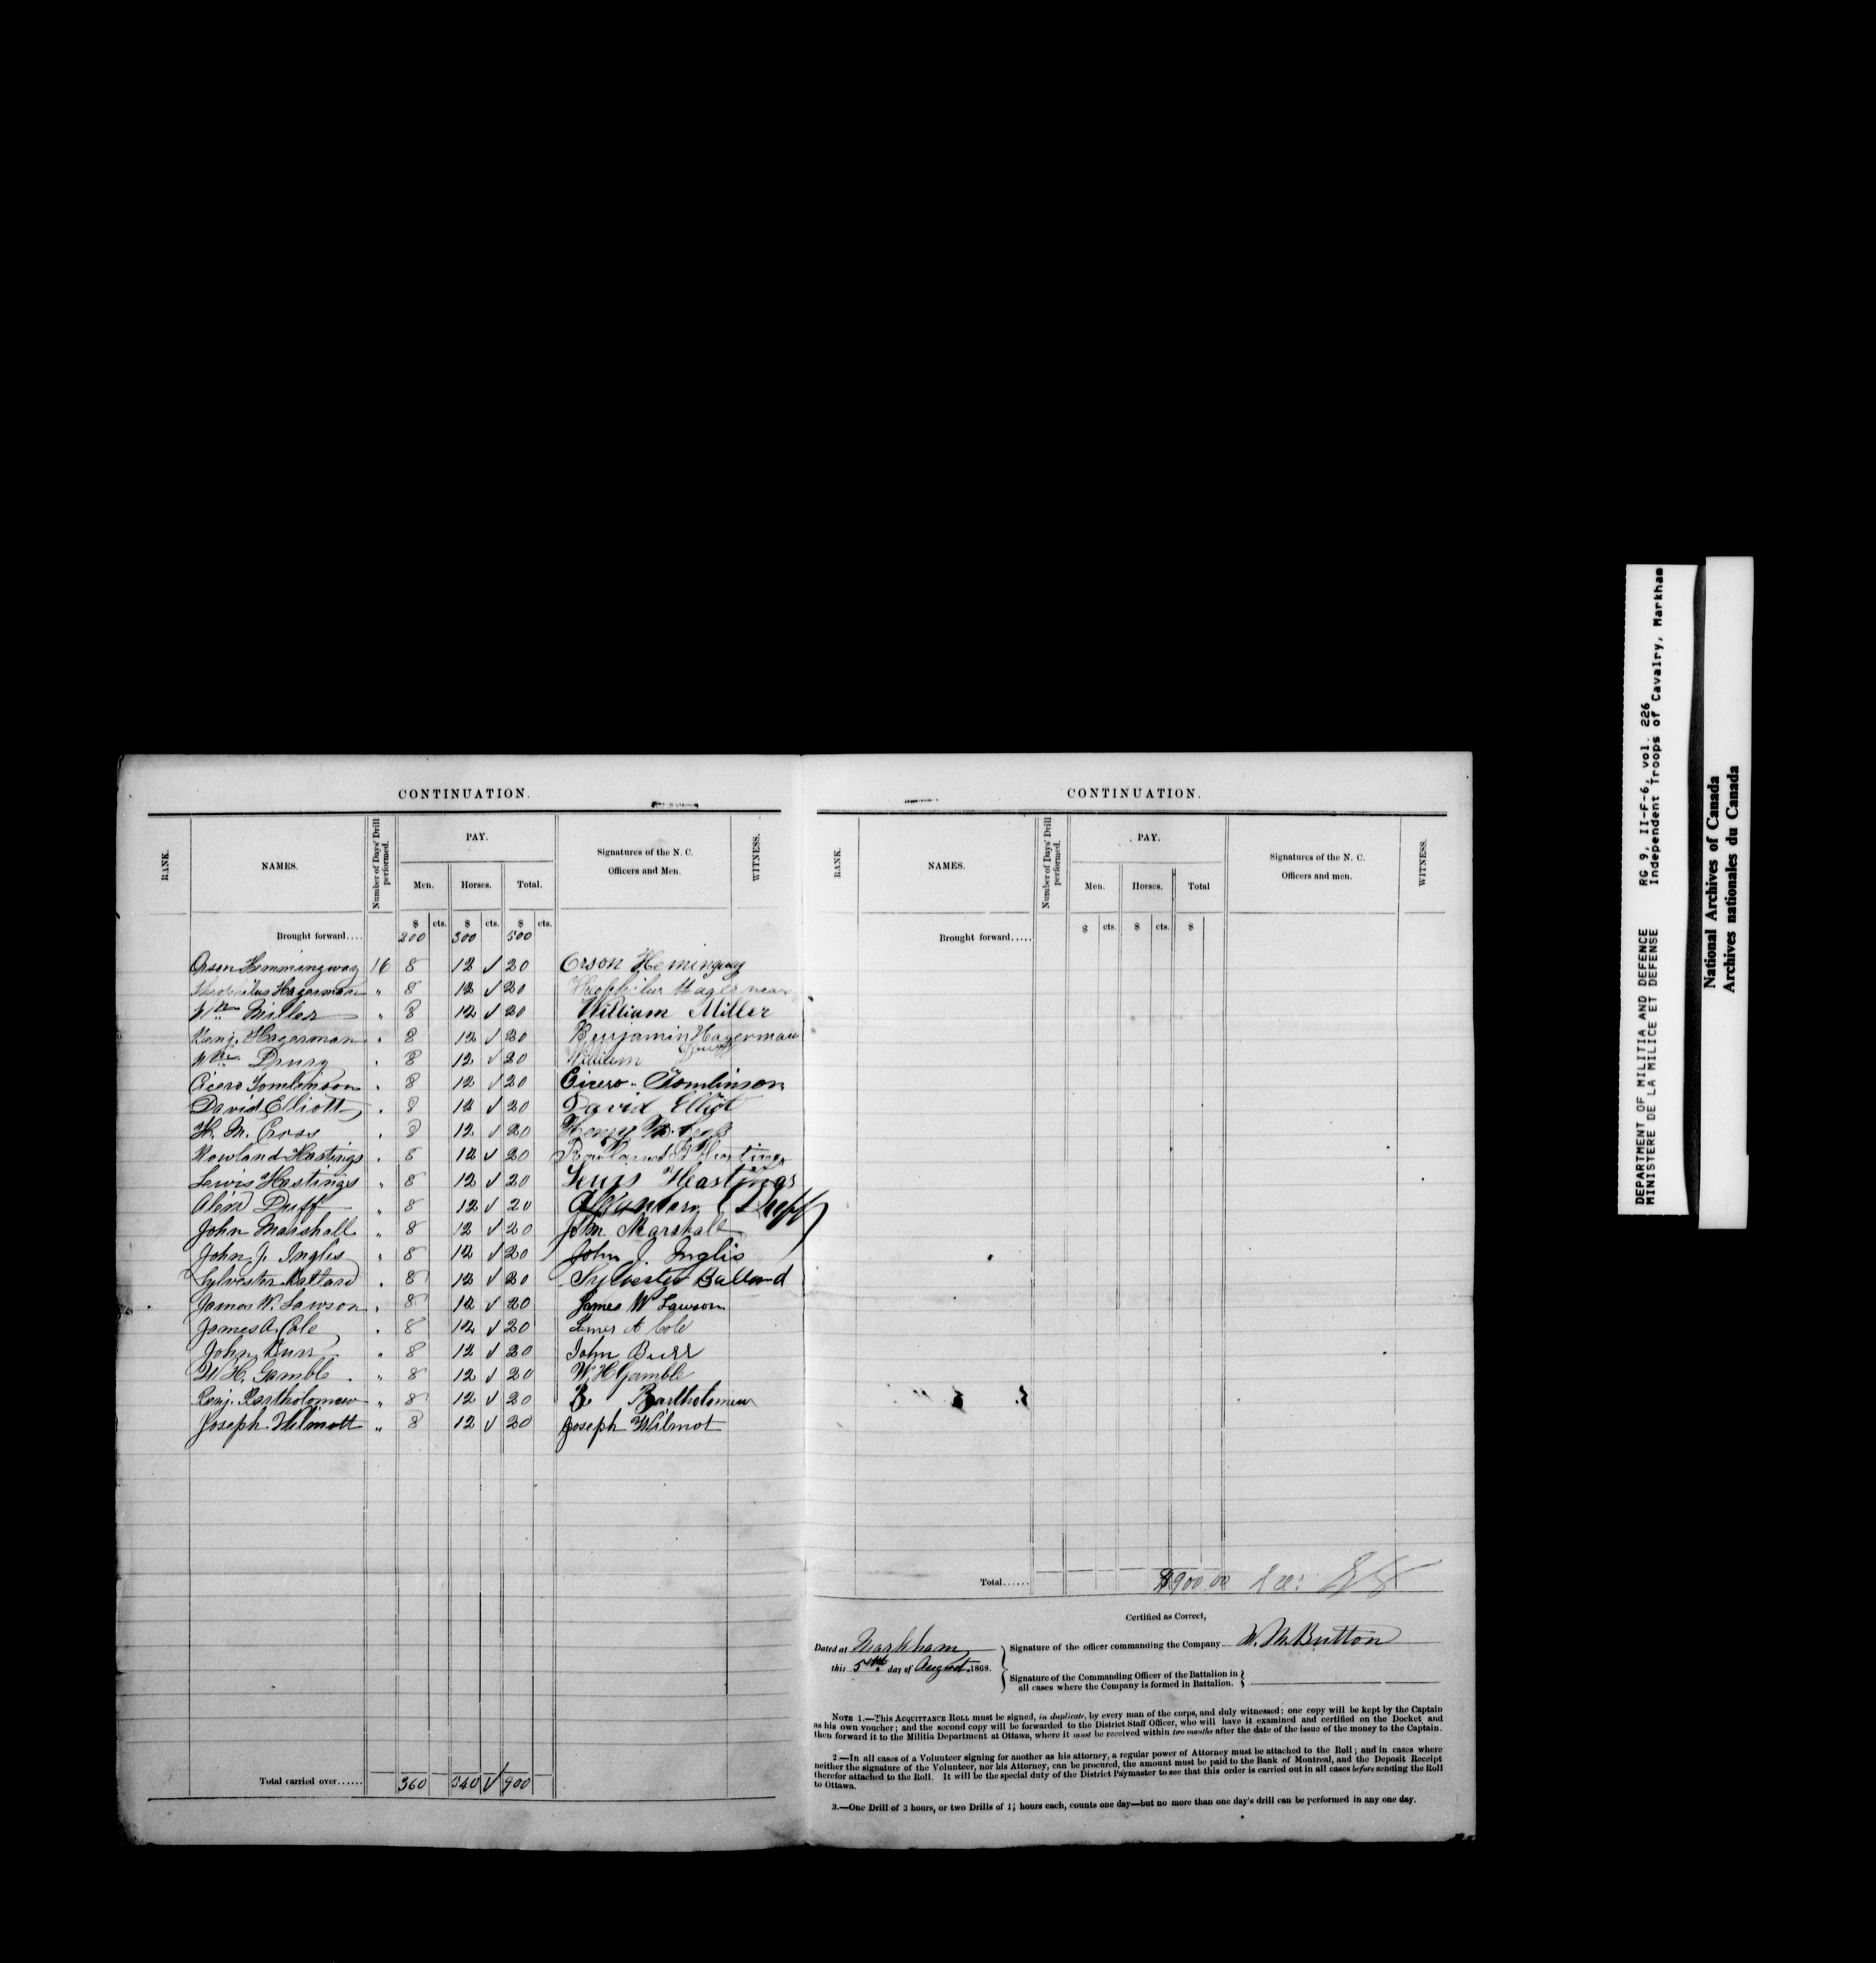 CONTINUATION.
RANK. NAMES. Number of Days' Drill performed. PAY. Signatures of the N. C. Officers and Men. WITNESS.
Men. Horses. Total.
$ cts. $ cts. $ cts.
Brought forward.... 200 300 500
Orson Hemmingway 16 8 12 ✓ 20 Orson Hemingway
Theophilus Hagerman " 8 12 ✓ 20 Theophilus Hagerman
Wm Miller " 8 12 ✓ 20 William Miller
Benj. Hagerman " 8 12 ✓ 20 Benjamin Hagerman
Wm Drury " 8 12 ✓ 20 William
Cicero Tomlinson " 8 12 ✓ 20 Cicero Tomlinson
David Elliott " 8 12 ✓ 20 David Elliot
H. M. Cross " 8 12 ✓ 20 Henry M. Cross
Rowland Hastings " 8 12 ✓ 20 Rowland Hastings
Lewis Hastings " 8 12 ✓ 20 Lewis Heastings
Alexd Duff " 8 12 ✓ 20 Alexander Duff
John Marshall " 8 12 ✓ 20 John Marshall
John J. Inglis " 8 12 ✓ 20 John J Inglis
Sylvester Ballard " 8 12 ✓ 20 Sylvester Ballard
James W. Lawson " 8 12 ✓ 20 James W Lawson
James A. Cole " 8 12 ✓ 20 James A Cole
John Burr " 8 12 ✓ 20 John Burr
W. H. Gamble " 8 12 ✓ 20 W. H Gamble
Benj. Bartholomew " 8 12 ✓ 20 B Bartholomew
Joseph Wilmott " 8 12 ✓ 20 Joseph Wilmot
Total carried over...... 360 540 ✓ 900
CONTINUATION.
RANK. NAMES. Number of Days' Drill performed. PAY. Signatures of the N. C. Officers and men. WITNESS.
Men. Horses. Total
$ cts. $ cts. $
Brought forward.....
Total...... $900 00
Certified as Correct,
Dated at Markham
this 5th day of August 1868.
Signature of the officer commanding the Company W. M. Button
Signature of the Commanding Officer of the Battalion in
all cases where the Company is formed in Battalion.
NOTE 1.—This ACQUITTANCE ROLL must be signed, in duplicate, by every man of the corps, and duly witnessed: one copy will be kept by the Captain
as his own voucher; and the second copy will be forwarded to the District Staff Officer, who will have it examined and certified on the Docket and
then forward it to the Militia Department at Ottawa, where it must be received within two months after the date of the issue of the money to the Captain.
2.—In all cases of a Volunteer signing for another as his attorney, a regular power of Attorney must be attached to the Roll; and in cases where
neither the signature of the Volunteer, nor his Attorney, can be procured, the amount must be paid to the Bank of Montreal, and the Deposit Receipt
therefor attached to the Roll. It will be the special duty of the District Paymaster to see that this order is carried out in all cases before sending the Roll
to Ottawa.
3.—One Drill of 3 hours, or two Drills of 1½ hours each, counts one day—but no more than one day's drill can be performed in any one day.
DEPARTMENT OF MILITIA AND DEFENCE RG 9, II-F-6, vol. 226
MINISTERE DE LA MILICE ET DEFENSE Independent Troops of Cavalry, Markham
National Archives of Canada
Archives nationales du Canada